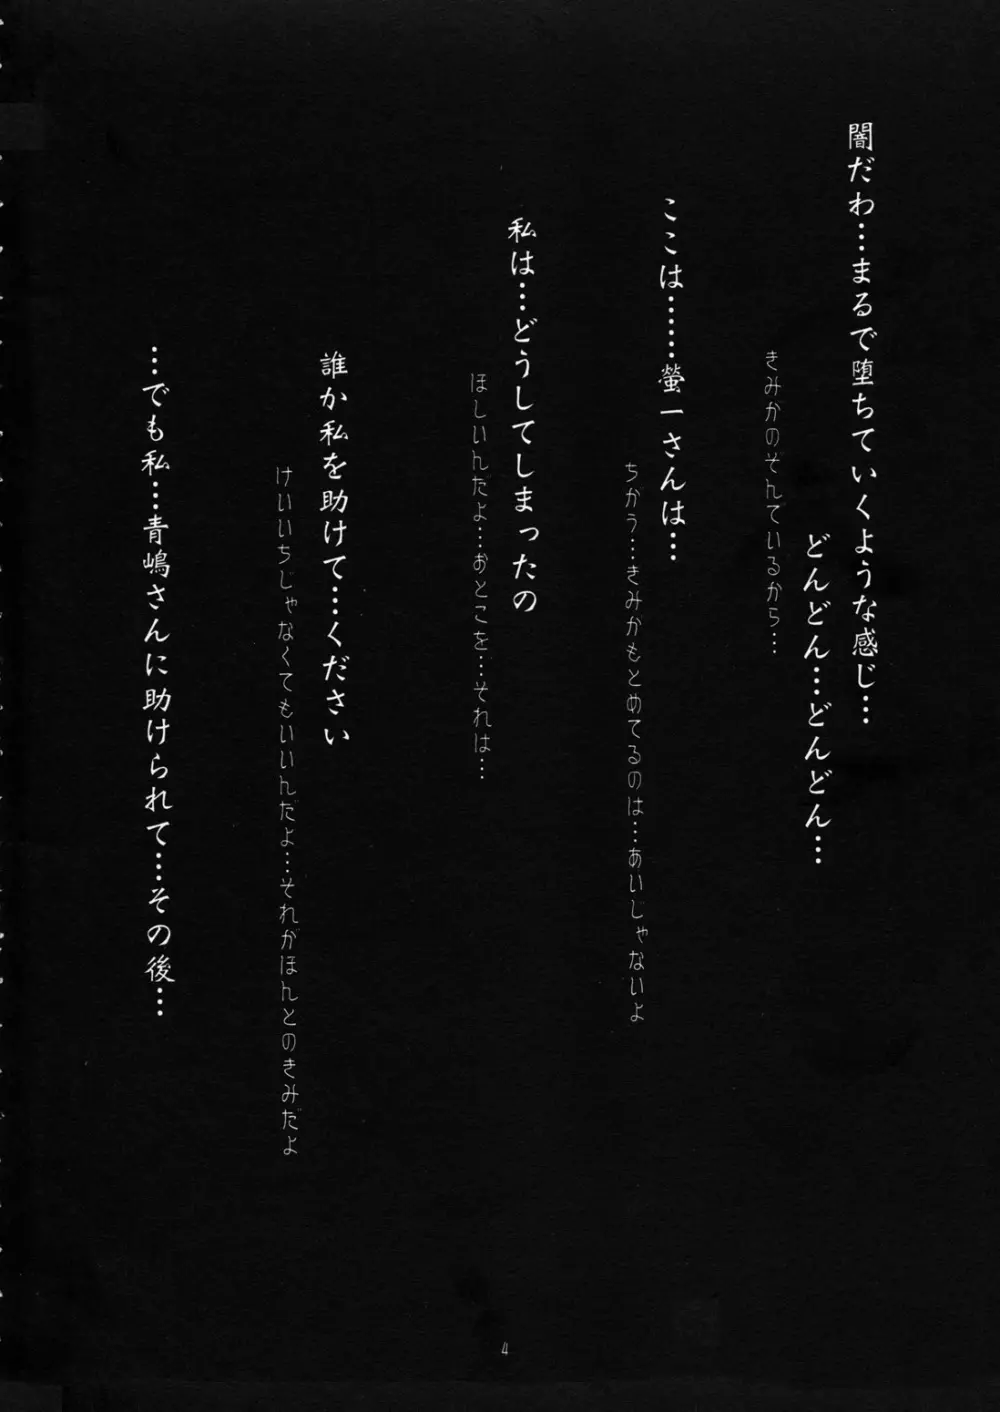 闇だわ…まるで堕ちていくような感じ…
どんどん…どんどん…
きみがのぞんでいるから…
ここは……螢一さんは…
ちがう…きみがもとめてるのは…あいじゃないよ
私は…どうしてしまったの
ほしいんだよ…おとこを…それは…
誰か私を助けて…ください
けいいちじゃなくてもいいんだよ…それがほんとのきみだよ
…でも私…青嶋さんに助けられて…その後…
4